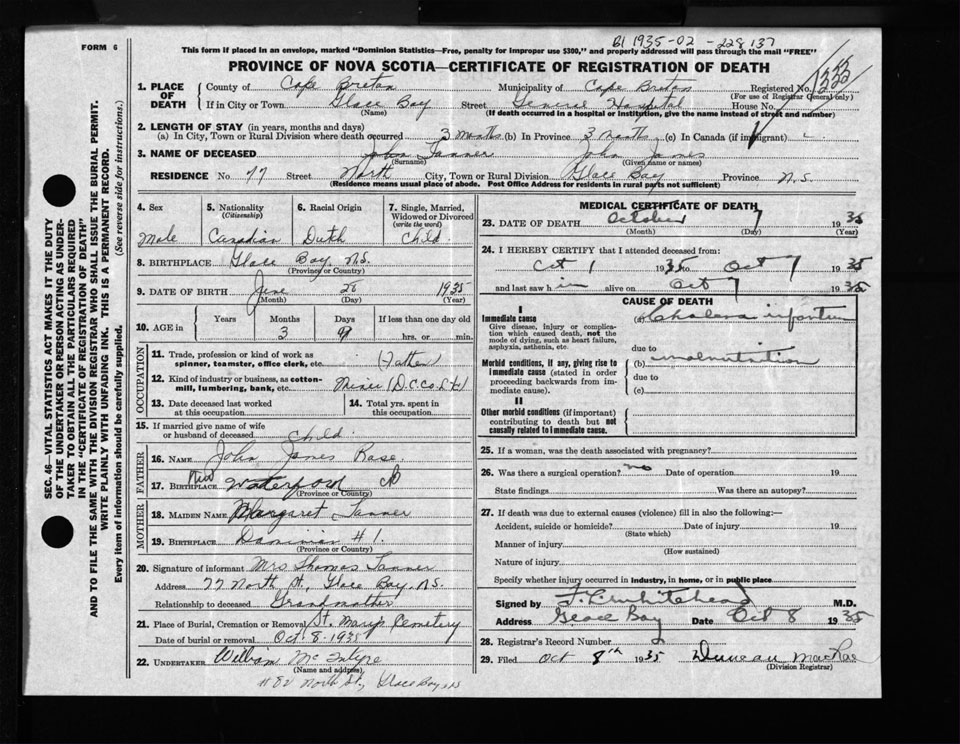 B1 1935-02-228137
FORM 6
This form if placed in an envelope, marked "Dominion Statistics—Free, penalty for improper use $300," and properly addressed will pass through the mail "FREE"
PROVINCE OF NOVA SCOTIA—CERTIFICATE OF REGISTRATION OF DEATH
1. PLACE OF DEATH
County of Cape Breton Municipality of Cape Breton Registered No.
(For use of Registrar General only)
If in City or Town Glace Bay Street General Hospital House No.
(Name) (If death occurred in a hospital or institution, give the name instead of street and number)
2. LENGTH OF STAY (in years, months and days)
(a) In City, Town or Rural Division where death occurred 3 months (b) In Province 3 months (c) In Canada (if immigrant)
3. NAME OF DECEASED John Tanner John James
(Surname) (Given name or names)
RESIDENCE No. 77 Street North City, Town or Rural Division Glace Bay Province N.S.
(Residence means usual place of abode. Post Office Address for residents in rural parts not sufficient)
4. Sex
Male
5. Nationality
(Citizenship)
Canadian
6. Racial Origin
Dutch
7. Single, Married, Widowed or Divorced
(write the word)
Child
8. BIRTHPLACE Glace Bay, N.S.
(Province or Country)
9. DATE OF BIRTH June 28 1935
(Month) (Day) (Year)
10. AGE in
Years Months Days If less than one day old
3 9 hrs. or min.
OCCUPATION
11. Trade, profession or kind of work as spinner, teamster, office clerk, etc. (Father)
12. Kind of industry or business, as cotton-mill, lumbering, bank, etc. Miner (D.C.Co. Ltd)
13. Date deceased last worked at this occupation
14. Total yrs. spent in this occupation
15. If married give name of wife or husband of deceased Child
FATHER
16. NAME John James Rose
17. BIRTHPLACE New Waterford CB
(Province or Country)
MOTHER
18. MAIDEN NAME Margaret Tanner
19. BIRTHPLACE Dominion #1.
(Province or Country)
20. Signature of informant Mrs Thomas Tanner
Address 77 North St, Glace Bay, N.S.
Relationship to deceased Grandmother
21. Place of Burial, Cremation or Removal St. Mary's Cemetery
Date of burial or removal Oct 8-1935
22. UNDERTAKER William McIntyre
(Name and address)
#82 North St, Glace Bay NS
MEDICAL CERTIFICATE OF DEATH
23. DATE OF DEATH October 7 1935
(Month) (Day) (Year)
24. I HEREBY CERTIFY that I attended deceased from:
Oct 1 1935 to Oct 7 1935
and last saw him alive on Oct 7 1935
CAUSE OF DEATH
I
Immediate cause
Give disease, injury or complication which caused death, not the mode of dying, such as heart failure, asphyxia, asthenia, etc.
(a) Cholera infantum
due to
Morbid conditions, if any, giving rise to immediate cause (stated in order proceeding backwards from immediate cause).
(b) malnutrition
due to
(c)
II
Other morbid conditions (if important) contributing to death but not causally related to immediate cause.
25. If a woman, was the death associated with pregnancy?
26. Was there a surgical operation? no Date of operation 19
State findings Was there an autopsy?
27. If death was due to external causes (violence) fill in also the following:—
Accident, suicide or homicide? Date of injury 19
(State which)
Manner of injury
(How sustained)
Nature of injury
Specify whether injury occurred in industry, in home, or in public place
Signed by Whitehead M.D.
Address Glace Bay Date Oct 8 1935
28. Registrar's Record Number
29. Filed Oct 8th 1935 Duncan MacRae
(Division Registrar)
SEC. 46—VITAL STATISTICS ACT MAKES IT THE DUTY
OF THE UNDERTAKER OR PERSON ACTING AS UNDER-
TAKER TO OBTAIN ALL THE PARTICULARS REQUIRED
IN THE "CERTIFICATE OF REGISTRATION OF DEATH"
AND TO FILE THE SAME WITH THE DIVISION REGISTRAR WHO SHALL ISSUE THE BURIAL PERMIT.
WRITE PLAINLY WITH UNFADING INK. THIS IS A PERMANENT RECORD.
Every item of information should be carefully supplied. (See reverse side for instructions.)